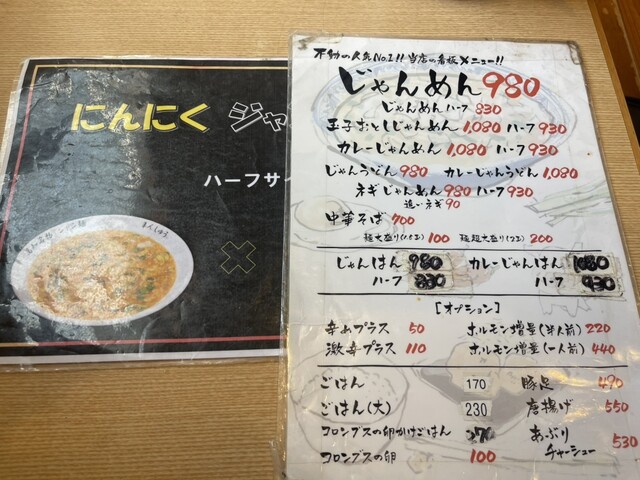 にんにく ジャ
ハーフサイ
×
不動の人気No.1!! 当店の看板メニュー!!
じゃんめん 980
じゃんめんハーフ 830
玉子おとしじゃんめん 1,080 ハーフ 930
カレーじゃんめん 1,080 ハーフ 930
じゃんうどん 980 カレーじゃんうどん 1,080
ネギじゃんめん 980 ハーフ 930
追いネギ 90
中華そば 700
麺大盛り(1.5玉) 100 麺超大盛り(2玉) 200
じゃんはん 980 カレーじゃんはん 1080
ハーフ 830 ハーフ 930
[オプション]
辛みプラス 50 ホルモン増量(半人前) 220
激辛プラス 110 ホルモン増量(一人前) 440
ごはん 170 豚足 490
ごはん(大) 230 唐揚げ 550
コロンブスの卵かけごはん あぶりチャーシュー 530
コロンブスの卵 100